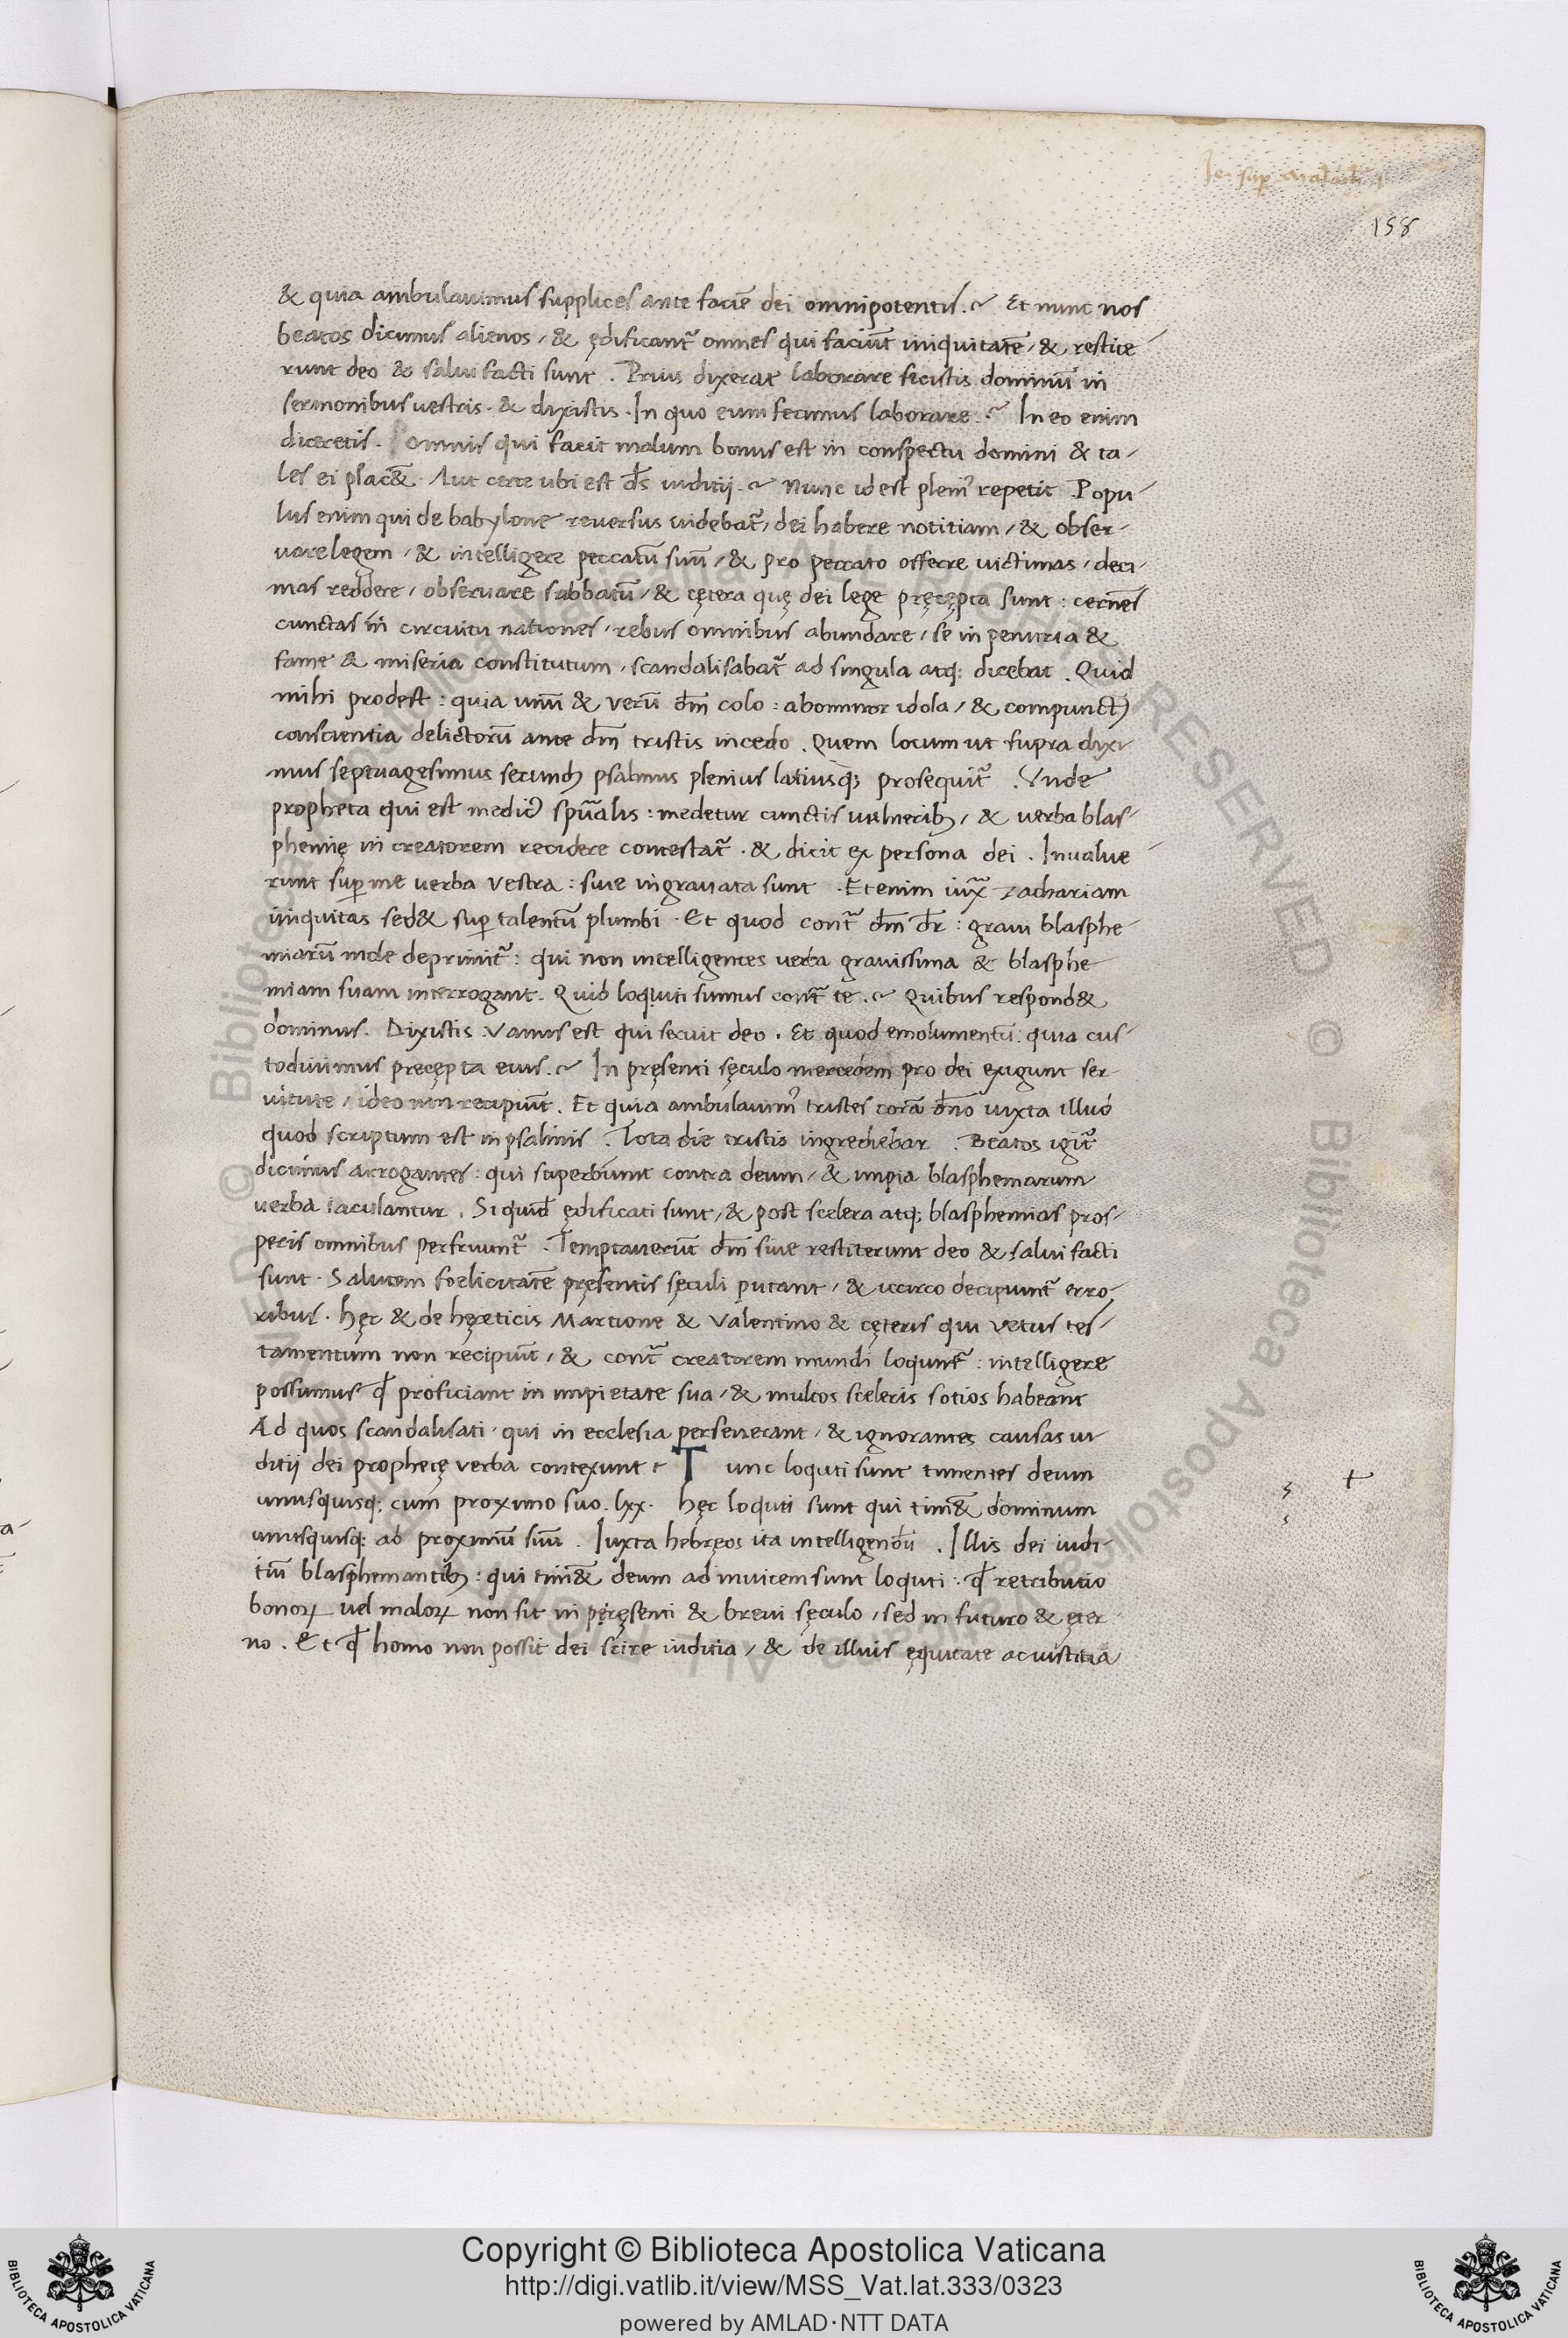 158
& quia ambulauimus supplices ante faciē dei omnipotentis.~ Et nunc nos
beatos dicimus alienos / & ędificant᷑ omnes qui faciūt iniquitatē / & restite
runt deo & salui facti sunt . Prius dixerat laborare fecistis dominū in
sermonibus uestris . & dixistis . In quo eum fecimus laborare .~ In eo enim
diceretis . Omnis qui facit malum bonus est in conspectu domini & ta/
les ei plac&̄ . Aut certe ubi est d̄s iuditij .~ Nunc id est pleni᷒ repetit . Popu/
lus enim qui de babylone reuersus uidebat᷑ / dei habere notitiam / & obser-
uare legem / & intelligere peccatū suū / & pro peccato offerre uictimas / deci-
mas reddere / obseruare sabbatū / & cętera quę dei lege pręcępta sunt : cernēs
cunctas in circuitu nationes / rebus omnibus abundare / se in penuria &
fame & miseria constitutum / scandalisabat᷑ ad singula atq; dicebat . Quid
mihi prodest : quia unū & verū dm̄ colo : abominor idola / & compunct᷒
conscientia delictorū ante dm̄ tristis incedo . Quem locum ut supra dixi
mus septuagesimus secund᷒ psalmus plenius latiusq; prosequit᷑ . Vnde
propheta qui est medic᷒ spūalis : medetur cunctis uulnerib; / & uerba blas-
phemię in creatorem recidere contestat᷑ . & dicit ex persona dei . Inualue
runt sup̱ me uerba vestra : siue ingrauata sunt . Etenim iux̄ zachariam
iniquitas sed& sup̱ talentū plumbi . Et quod cont᷑ dm̄ dr̄ : graui blasphe-
miarū mole deprimit᷑ : qui non intelligentes uerba grauissima & blasphe
miam suam interrogant . Quid loquuti sumus cont᷑ te .~ Quibus respond&
dominus . Dixistis . Vanus est qui seruit deo . Et quod emolumentū : quia cus-
todiuimus precępta eius .~ In pręsenti sęculo mercedem pro dei exigunt ser-
uitute / ideo non recipiūt . Et quia ambulauim᷒ tristes corā dn̄o iuxta illud
quod scriptum est in psalmis . Tota die tristis ingrediebar . Beatos igit᷑
dicimus arrogantes : qui superbiunt contra deum / & impia blasphemarum
uerba iaculantur . Siquid̄ ędificati sunt / & post scelera atq; blasphemias pros-
peris omnibus perfruunt᷑ . Temptauerūt dm̄ siue restiterunt deo & salui facti
sunt . Salutem foelicitatē pręsentis sęculi putant / & iccirco decipiunt᷑ erro/
ribus . Hęc & de hęreticis Martione & Valentino & cęteris qui vetus tes/
tamentum non recipiūt / & cont᷑ creatorem mundi loqunt᷑ : intelligere
possumus ꝙ proficiant in impietate sua / & multos sceleris sotios habeant
Ad quos scandalisati / qui in ecclesia perseuerant / & ignorantes causas iu
ditij dei prophetę verba contexunt . Tunc loquti sunt timentes deum
unusquisq; cum proximo suo . lxx . Hęc loquti sunt qui tim& dominum
unusquisq; ad proximū suū . Iuxta hebręos ita intelligendū . Illis dei iudi-
tiū blasphemantib; : qui tim&̄ deum ad inuicem sunt loquti : ꝙ retributio
bonoꝝ uel maloꝝ non sit in pręsenti & breui sęculo / sed in futuro & ęter-
no . Et ꝙ homo non possit dei scire iuditia / & de illius ęquitate ac iustitia
Copyright © Biblioteca Apostolica Vaticana
http://digi.vatlib.it/view/MSS_Vat.lat.333/0323
powered by AMLAD·NTT DATA
BIBLIOTECA APOSTOLICA VATICANA
BIBLIOTECA APOSTOLICA VATICANA